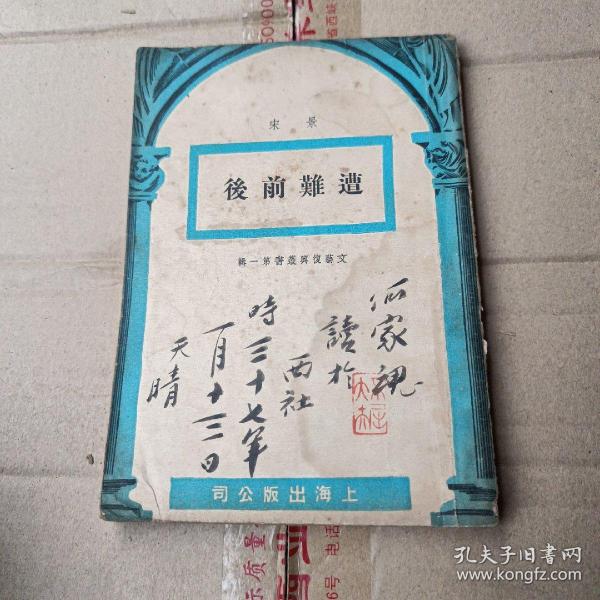 景宋
遭難前後
文藝復興叢書第一輯
家
讀於
西社
時三十七年
一月十三日
天晴
上海出版公司
质量
电话
6号
孔夫子旧书网
www.kongfz.com